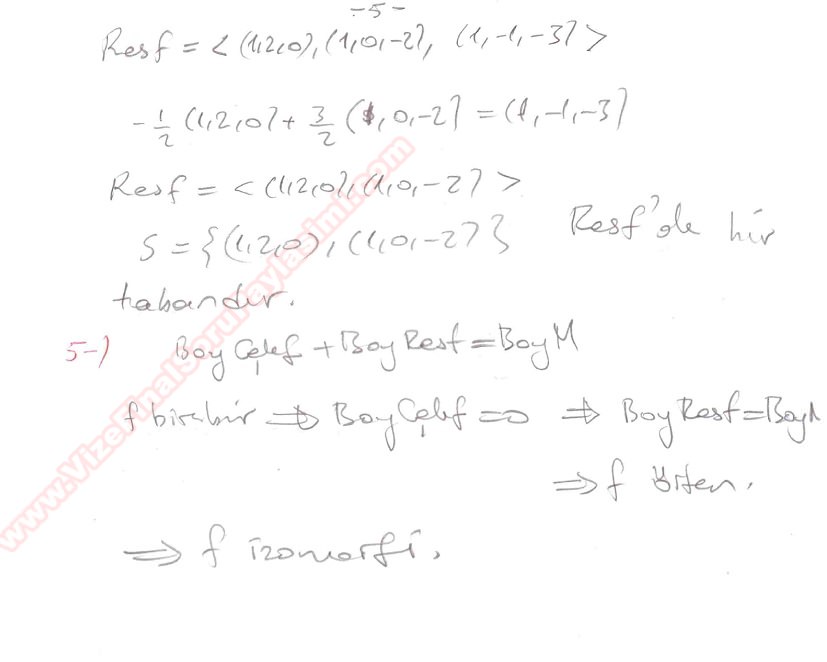 -5-
Resf = < (1,2,0), (1,0,-2), (1,-1,-3) >
-1/2 (1,2,0) + 3/2 (1,0,-2) = (1,-1,-3)
Resf = < (1,2,0), (1,0,-2) >
S = {(1,2,0), (1,0,-2)} Resf'de bir
tabandır.
5-) Boy Çekf + Boy Resf = Boy M
f birebir ⇒ Boy Çekf = 0 ⇒ Boy Resf = Boy M
⇒ f örten.
⇒ f izomorfi.
www.VizeFinalSoruPaylasimi.com